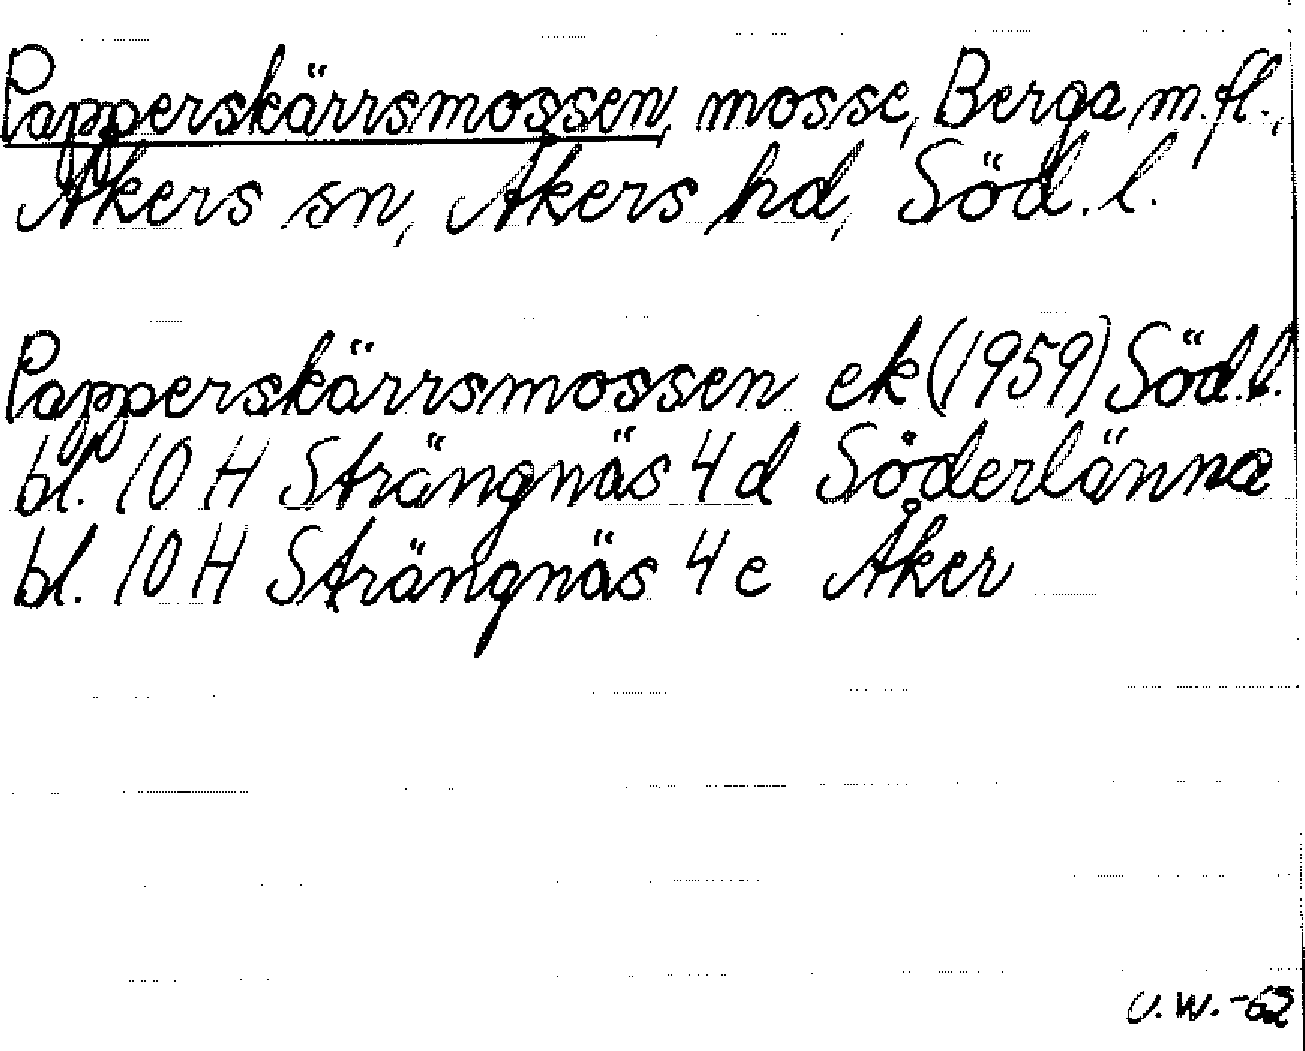 Papperskärrsmossen, mosse, Berga m.fl.,
Åkers sn, Åkers hd, Söd.l.
Papperskärrsmossen ek (1959) Söd.l.
bl. 10 H Strängnäs 4 d Söderlänna
bl. 10 H Strängnäs 4 e Åker
U.W.-62